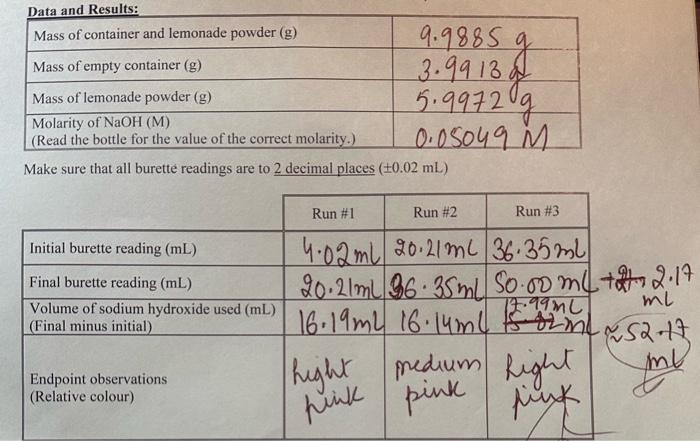 Data and Results:
Mass of container and lemonade powder (g) 9.9885 g
Mass of empty container (g) 3.9913 g
Mass of lemonade powder (g) 5.9972 g
Molarity of NaOH (M)
(Read the bottle for the value of the correct molarity.) 0.05049 M
Make sure that all burette readings are to 2 decimal places (±0.02 mL)
Run #1 Run #2 Run #3
Initial burette reading (mL) 4.02mL 20.21mL 36.35mL
Final burette reading (mL) 20.21mL 36.35mL 50.00mL + 2.17
mL
Volume of sodium hydroxide used (mL) 17.99mL
(Final minus initial) 16.19mL 16.14mL ≈52.17
mL
light medium light
Endpoint observations
(Relative colour) pink pink pink